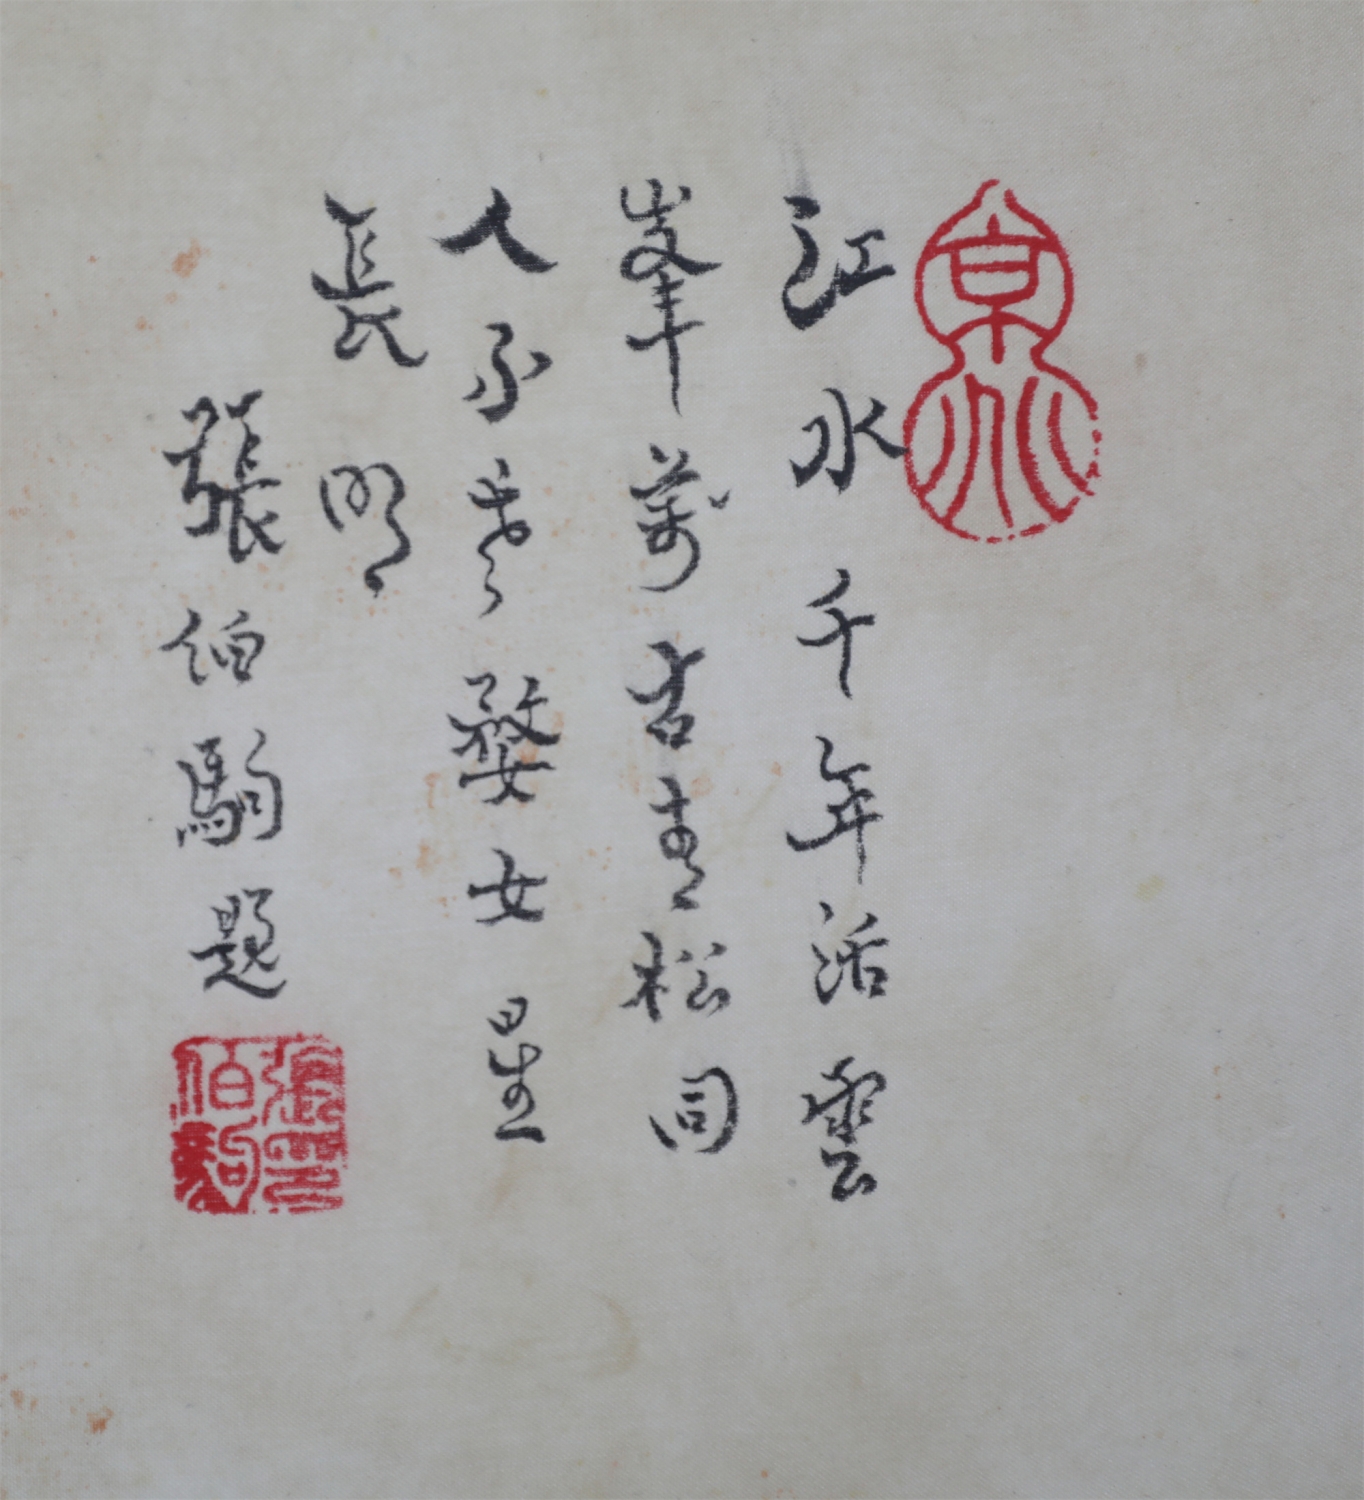 京兆
江水千年活雲
峯萬古青松同
人不老婺女星
長明
張伯駒題
張印伯駒